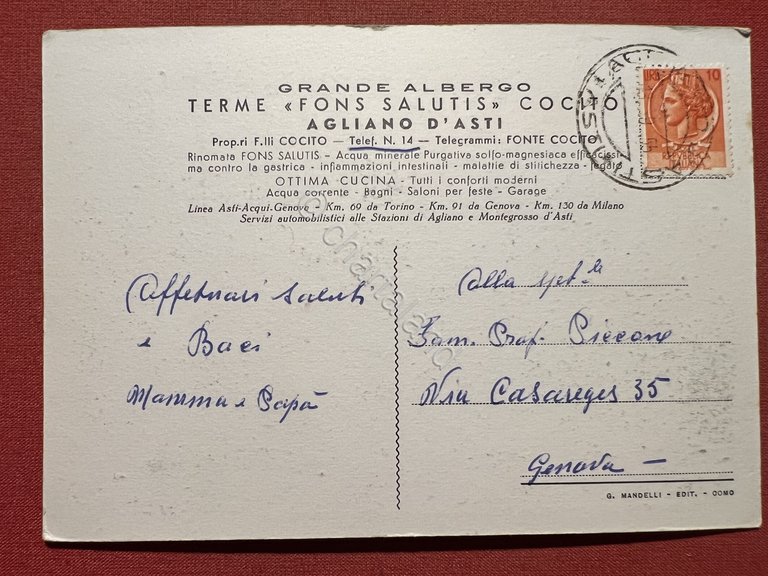 GRANDE ALBERGO
TERME «FONS SALUTIS» COCITO
AGLIANO D'ASTI
Prop.ri F.lli COCITO — Telef. N. 14 — Telegrammi: FONTE COCITO
Rinomata FONS SALUTIS - Acqua minerale Purgativa solfo-magnesiaca efficacissi-
ma contro la gastrica - infiammazioni intestinali - malattie di stitichezza - fegato
OTTIMA CUCINA - Tutti i conforti moderni
Acqua corrente - Bagni - Saloni per feste - Garage
Linea Asti-Acqui-Genova - Km. 69 da Torino - Km. 91 da Genova - Km. 130 da Milano
Servizi automobilistici alle Stazioni di Agliano e Montegrosso d'Asti
LIRE 10
Affettuosi saluti
e Baci
Mamma e Papà
Alla
Fam. Prof. Piccone
Via Casareges 35
Genova —
G. MANDELLI - EDIT. - COMO